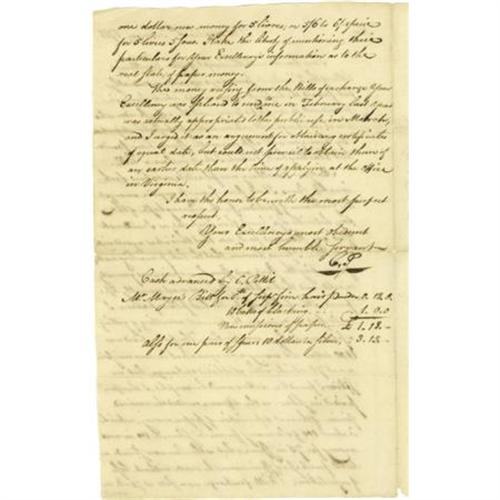 one dollar new money for 3 livres, or 5/6 to 6/ specie
for 5 livres 5 sous. I take the liberty of mentioning these
particulars for your Excellency's information as to the
real state of paper money.
The money resulting from the Bills of exchange Your
Excellency was pleased to send me in February last
was actually appropriated to the public use in March,
and I urged it as an argument for obtaining certificates
of equal date, but could not prevail to obtain them of
an earlier date than the time of applying at the office
in Virginia.
I have the honor to be, with the most perfect
respect,
Your Excellency's most obedient
and most humble Servant
C, P
Cash advanced by C. Pettit
Mr. Mayer's Bill for hair Powder 0. 13. 0.
10 Cakes of blacking 1. 0. 0
£ 1. 13. -
Also for one pair of Spurs 10 dollars in silver, 3. 15. -